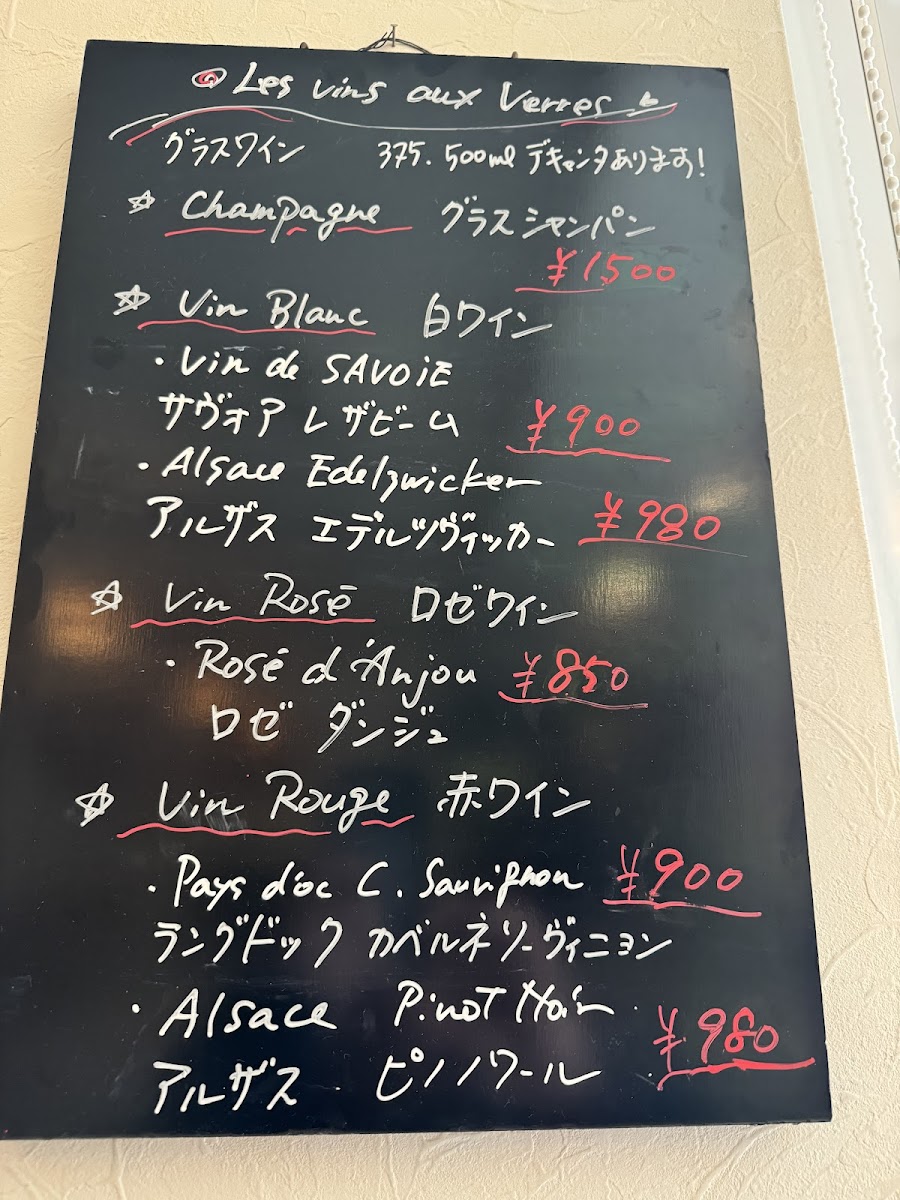 Les vins aux Verres
グラスワイン 375. 500ml デキャンタあります!
☆ Champagne グラスシャンパン
¥1500
☆ Vin Blanc 白ワイン
・Vin de SAVOIE
サヴォア レザビーム ¥900
・Alsace Edelzwicker
アルザス エデルツヴィッカー ¥980
☆ Vin Rosé ロゼワイン
・Rosé d'Anjou ¥850
ロゼ ダンジュ
☆ Vin Rouge 赤ワイン
・Pays d'oc C. Sauvignon ¥900
ラングドック カベルネソーヴィニヨン
・Alsace Pinot Noir ¥980
アルザス ピノノワール